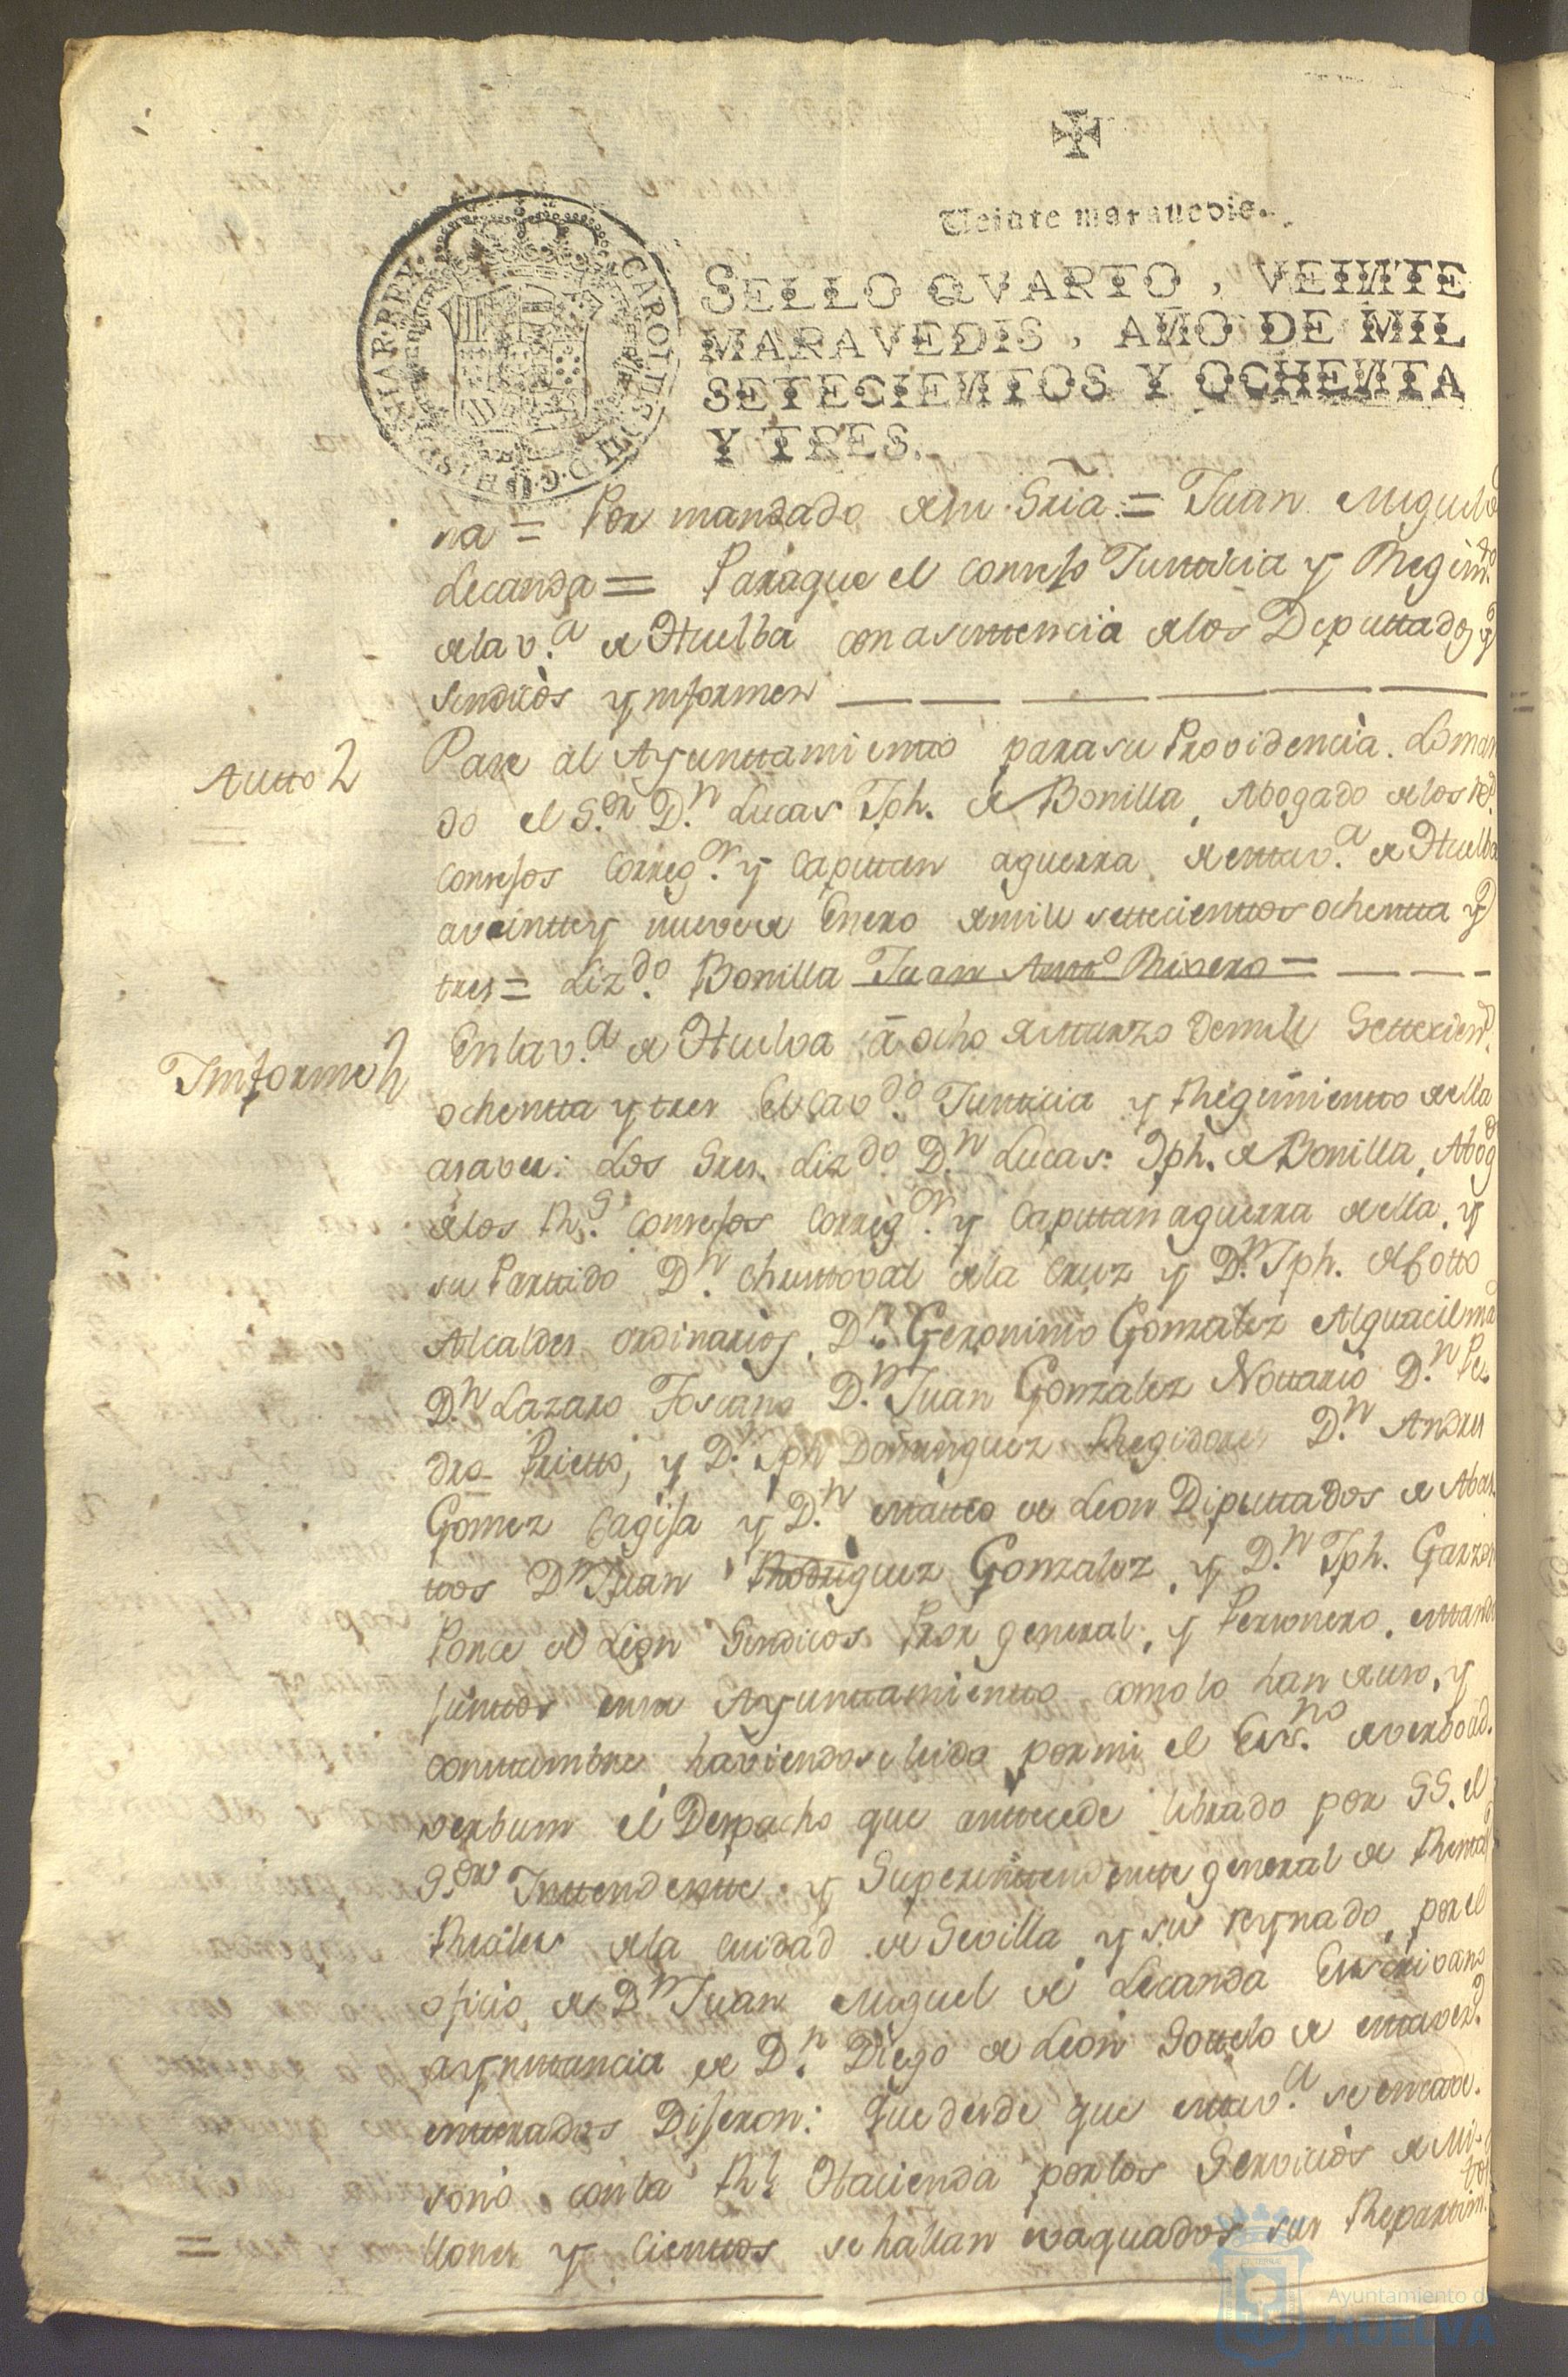 Veinte marauedis.
SELLO QVARTO, VEINTE
MARAVEDIS, AÑO DE MIL
SETECIENTOS Y OCHENTA
Y TRES.
CAROLUS III D.G. HISPANIAR REX
na = Por mandado de su Sria = Juan Miguel de
Lecanda = Paraque el consejo Justicia y Regimto
dela v.a de Huelba con asistencia delos Deputados y
sindicos ynformen
Autto
Pase al Ayunttamientto para su Providencia. Lo man
do el S.or D.n Lucas Jph. de Bonilla, Abogado delos Rs.
consejos Correg.or y Capittan aguerra de estta v.a de Huelba
aveintte y nueve de Enero demill settecienttos ochentta y
tres = Lizdo. Bonilla Juan Antto Rivero =
Informe
En la v.a de Huelva á ocho de Marzo demill Settecient.
ochentta y tres El Cavdo. Justicia y Regimientto della
asaver: Los Sres. Lizdo. D.n Lucas Jph. de Bonilla, Abogdo
delos Rs. consejos Correg.or y Capittan aguerra della, y
su Parttido D.n Christtoval dela Cruz y D.n Jph. de Cotto
Alcaldes ordinarios, D.n Geronimo Gonzalez Alguacil ma
D.n Lazaro Toscano D.n Juan Gonzalez Nottario D.n Pe
dro Prietto, y D.n Jph Dominguez Regidores D.n Andres
Gomez Cagisa y D.n Matteo de Leon Diputtados de Abas
ttos D.n Juan Rodriguez Gonzalez, y D.n Jph. Garzon
Ponce de Leon Sindicos Pror general, y Personero, esttando
junttos en su Ayunttamientto como lo han de uso, y
costtumbre haviendose leido pormi el Essno. deverbo ad.
verbum el Despacho que anttecede librado por SS. el
S.or Inttendentte y Superinttendentte general de Renttas
Reales dela ciudad de Sevilla y su reynado, por el
oficio de D.n Juan Miguel de Lecanda Escrivano
aynsttancia de D.n Diego de Leon Sottelo de esttavezd.
entterados Dijeron: Que desde que estta v.a se encave.
sonó con la Rl. Hacienda por los Servicios de Mi-
llones y Cienttos se hallan evaquados sus Reparttim.tos
Ayuntamiento de
HUELVA